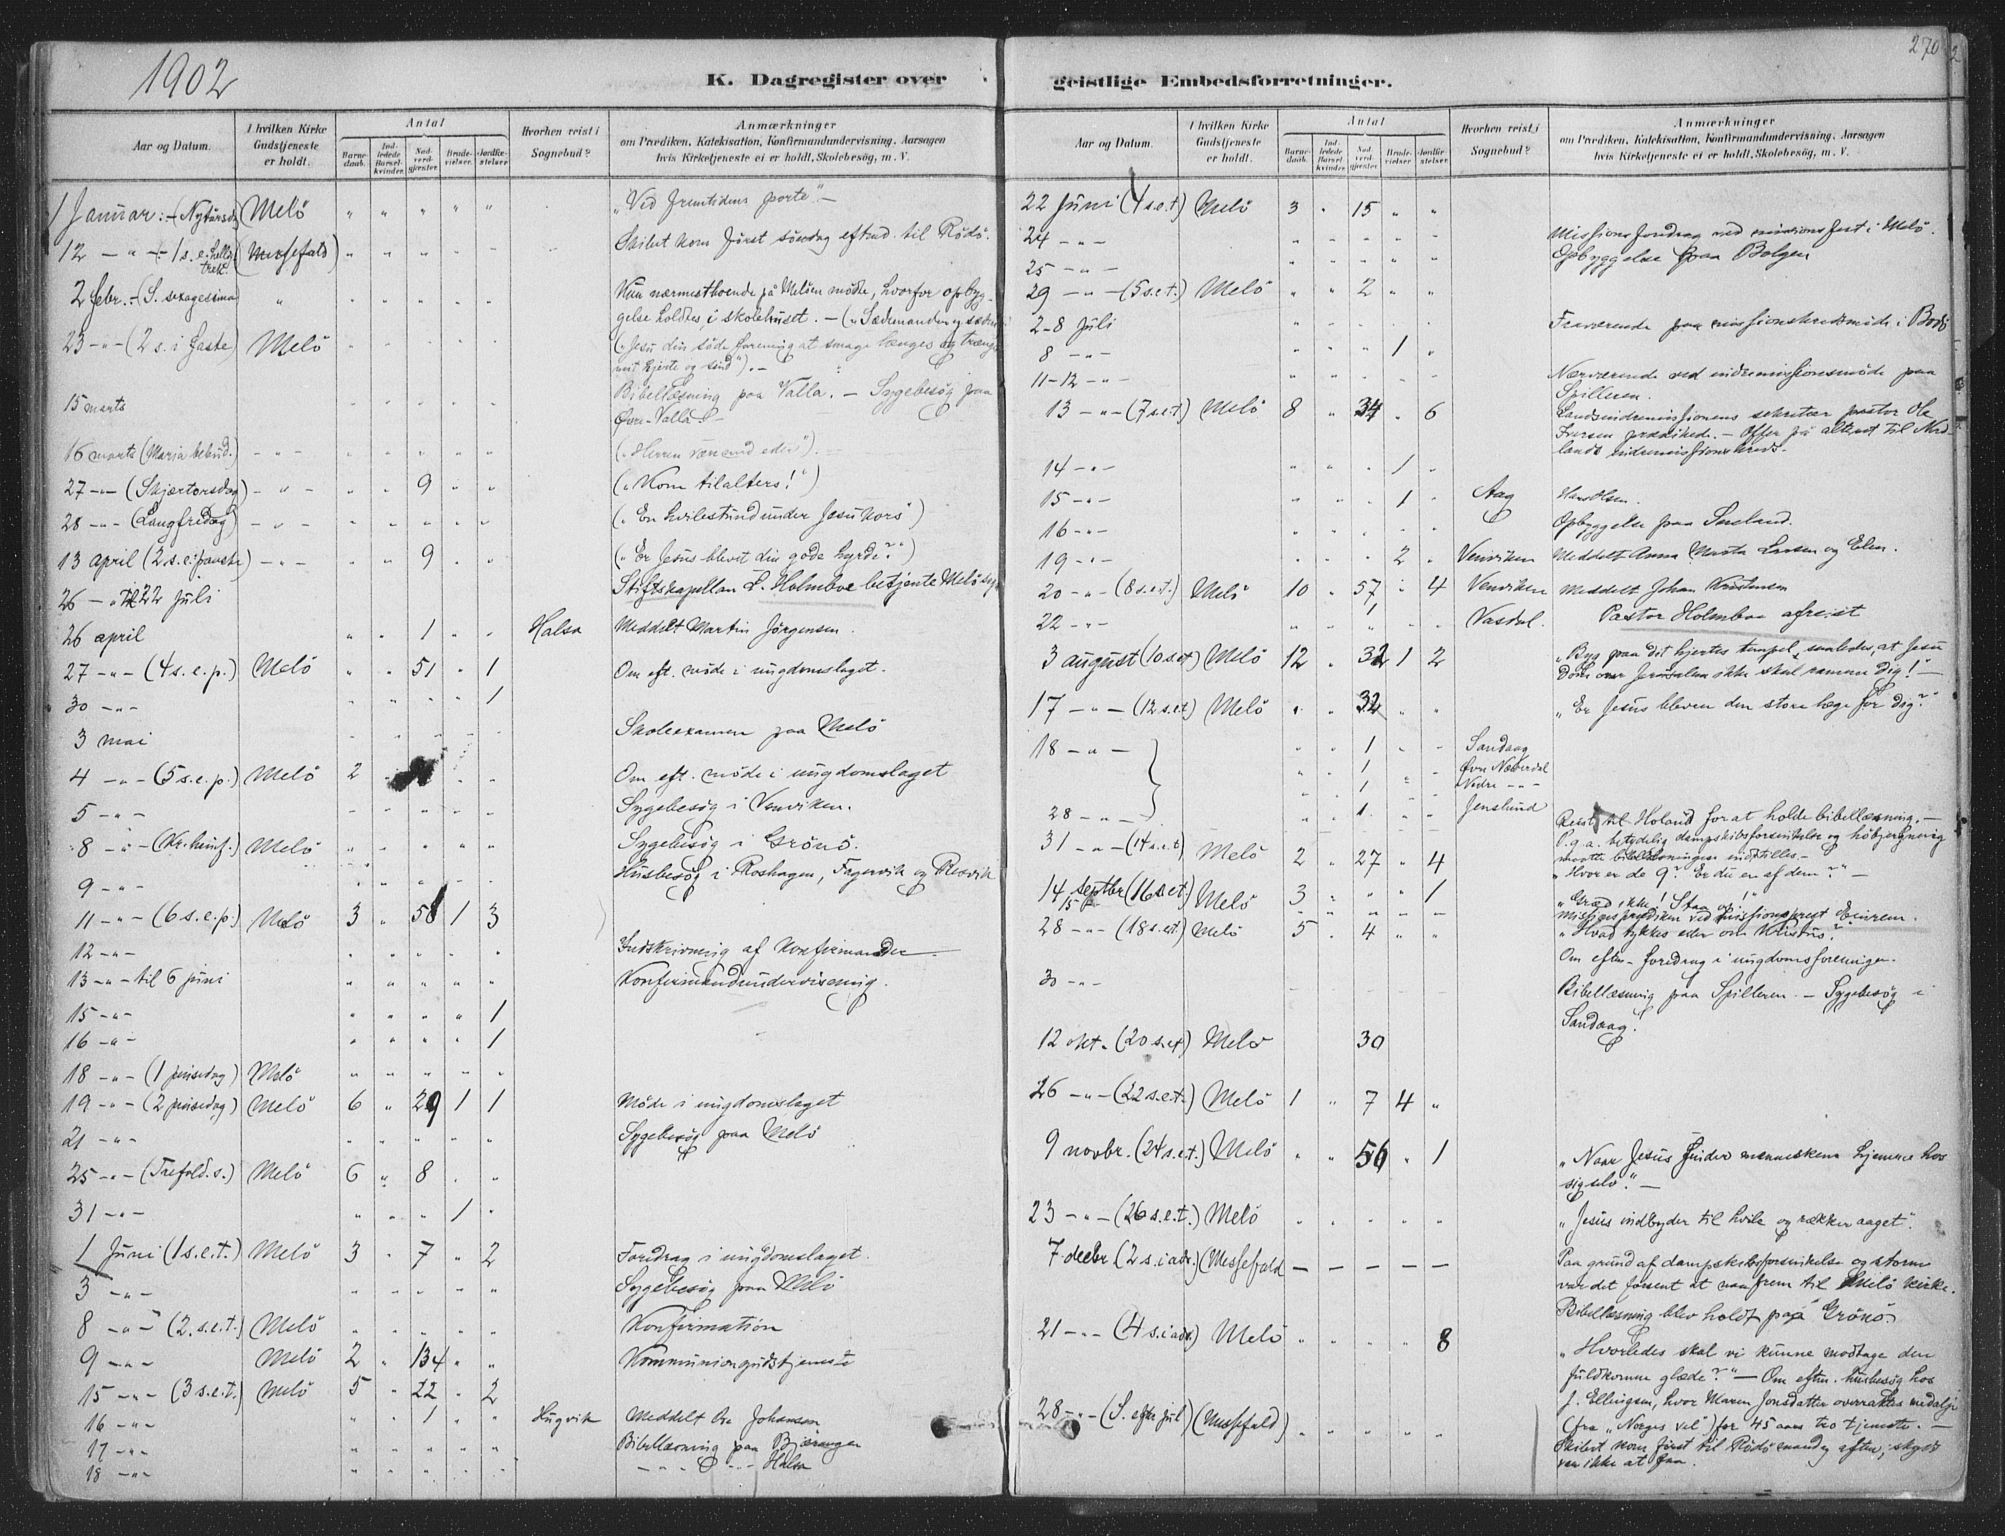 1902
K. Dagregister over
Aar og Datum.
I hvilken Kirke Gudstjeneste er holdt.
Antal
Barnedaab.
Indledede Barselkvinder.
Nadverdgjæster.
Brudevielser.
Jordfæstelser.
Hvorhen reist i Sognebud?
Anmærkninger
om Prædiken, Katekisation, Konfirmandundervisning, Aarsagen
hvis Kirketjeneste ei er holdt, Skolebesøg, m. V.
1 Januar :- (Nytårsd.) Melö " " " " " „Ved fremtidens porte". -
12 - " - 1 s. e. Hellig trek. (Messefald) " " " " " Skibet kom först söndag eftmd. til Rödö.
2 febr. - (S. sexagesima) " " " " " " Kun nærmestboende på Melöen mödte, hvorfor opbyg-
gelse holdtes i skolehuset. -
23 - " - (2 s. i faste) Melö " " " " "
(„Jesu din söde forening at smage længes og trænges
mit hjerte og sind"). -
15 marts " " " " " Bibellæsning paa Valla. - Sygebesög paa
Övre-Valla
16 marts (Maria bebud.) - " - " " " " " („Herren være med eder"). -
27 - " - (Skjærtorsdag) - " - " " 9 " " („Kom til alters!")
28 - " - (Langfredag) - " - " " " " " („En hvilestund under Jesu kors")
13 april (2 s. e. paaske) - " - " " 9 " " („Er Jesus blevet din gode hyrde?")
26 - " - til 22 Juli Stiftskapellan L. Holmboe betjente Melö sogn
26 april " " 1 " " Halsa Meddelt Martin Jörgensen.
27 - " - (4 s. e. p.) Melö " " 51 " 1 Om eft. möde i ungdomslaget.
30 - " - " " " " 1
3 mai " " " " " Skoleexamen paa Melö
4 - " - (5 s. e. p.) Melö 2 " " " Om eft. möde i ungdomslaget
5 - " - " " " " " Sygebesög i Venviken.
8 - " - (Kr. himf.) Melö " " " " " Sygebesög i Grönö.
9 - " - " " " " " Husbesög i Roshagen, Fagervik og Resvik
11 - " - (6 s. e. p.) Melö 3 " 58 1 3
12 - " - " " " " " Indskrivning af Konfirmander
13 - " - til 6 juni " " " " " Konfirmandundervisning.
15 - " - " " " " 1
16 - " - " " " " 1
18 - " - (1 pinsedag) Melö " " " " "
19 - " - (2 pinsedag) Melö 6 " 29 1 1 Möde i ungdomslaget
21 - " - " " " " " Sygebesög paa Melö
25 - " - (Trefold. s.) Melö 6 " 8 " "
31 - " - " " " 1 "
1 Juni (1 s. e. t.) Melö 3 " 7 " 2 Foredrag i ungdomslaget.
3 - " - " " " " " Sygebesög paa Melö
8 - " - (2. s. e. t.) Melö " " " " " Konfirmation
9 - " - Melö 2 " 134 " " Kommuniongudstjeneste
15 - " - (3 s. e. t.) Melö 5 " 22 " 2
16 - " - " " 1 " " Hugvik Meddelt Ole Johansen
17 - " - " " " " " Bibellæsning paa Bjærangen
18 - " - " " " " " - " - " - Halsa
270
geistlige Embedsforretninger.
Aar og Datum.
I hvilken Kirke Gudstjeneste er holdt.
Antal
Barnedaab.
Indledede Barselkvinder.
Nadverdgjæster.
Brudevielser.
Jordfæstelser.
Hvorhen reist i Sognebud?
Anmærkninger
om Prædiken, Katekisation, Konfirmandundervisning, Aarsagen
hvis Kirketjeneste ei er holdt, Skolebesøg, m. V.
22 Juni (4 s. e. t) Melö 3 " 15 " "
24 - " - " " " " " Missionsforedrag ved missionsfest i Melö.
25 - " - " " " " " Opbyggelse paa Bolgen
29 - " - (5 s. e. t.) Melö " " 2 " "
2-8 Juli " " " " " Fraværende paa missionskredsmöde i Bodö
8 - " - " " " 1 "
11-12 - " - " " " " " Nærværende ved indremissionsmöde paa
Spilleren.
13 - " - (7 s. e. t) Melö 8 " 34 " 6 Landsindremissionens sekretær pastor Ole
Iversen prædikede. - Offer på alteret til Nord-
lands indremissionskreds.
14 - " - " " " 1 "
15 - " - " " " 1 " Aag Hans Olsen.
16 - " - " " " " " Opbyggelse paa
19 - " - " " " 2 " Venviken Meddelt Anna Marta Larsen og Elen.
20 - " - (8 s. e. t.) Melö 10 " 57 " 4 Venviken Meddelt Johan Kristensen
22 - " - " " 1 " " Vasdal. Pastor Holmboe afreist
3 august (10 s. e. t) Melö 12 " 32 1 2 „Byg paa dit hjertes tempel, saaledes, at Jesu
dom over Jerusalem ikke skal ramme dig!" -
17 - " - (12 s. e. t) Melö " " 32 " " „Er Jesus bleven den store læge for dig?"
18 - " - " " 1 " " Sandaag
" " 1 " " Övre Næverdal
" " 1 " " Nedre - " -
28 - " - " " 1 " " Jenslund
Reist til Holand for at holde bibellæsning. -
P. g. a. betydelig dampskibsforsinkelse og höbjergning
maatte bibellæsningen indstilles. -
31 - " - (14 s. e. t) Melö 2 " 27 " 4 „Hvor er de 9? Er du en af dem?" -
14 septbr (16 s. e. t.) Melö 3 " " " 1 „Græd ikke! Staa op!"
15 " " " " " Missionsprædiken ved missionsprest Einrem.
28 - " - (18 s. e. t) Melö 5 " 4 " " „Hvad tykkes eder om Kristus?"
Om eftm. foredrag i ungdomsforeningen.
30 - " - Bibellæsning paa Spilleren. - Sygebesög i
Sandaag!
12 okt. (20 s. e. t) Melö 30
26 - " - (22 s. e. t.) Melö 1 " 7 4 "
9 novbr. (24 s. e. t.) Melö " " 56 " 1 „Naar Jesus finder menneskene hjemme hos
sig selv." -
23 - " - (26 s. e. t.) Melö " " " " " „Jesus indbyder til hvile og rækker aaget".
7 decbr (2 s. i adv.) (Messefald - - - - - Paa grund af dampskibsforsinkelse og storm
var det forsent at naa frem til Melö kirke.
Bibellæsning blev holdt paa Grönö.
21 - " - (4 s. i adv) Melö " " " " 8 „Hvorledes skal vi kunne modtage den
fuldkomne glæde?" - Om eftm. husbesög hos
J. Ellingsen, hvor Maren Jonsdatter overraktes medalje
(fra „Norges vel") for 45 aars tro tjeneste. -
28 - " - (S. efter jul) (Messefald) " " " " " Skibet kom först til Rödö mandag aften; skyds
var ikke at faa.